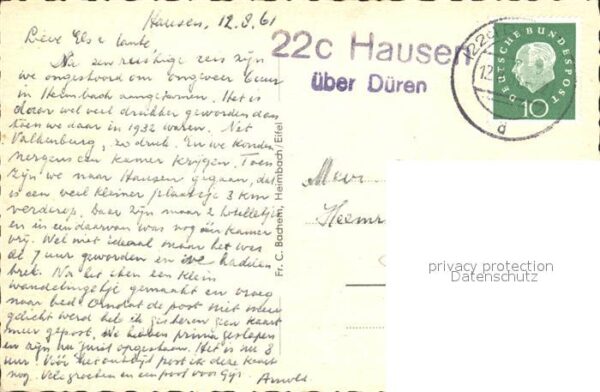 Hausen, 12.8.61
Lieve Els & tante,
Na een reis zijn
we ongestoord om ongeveer uur
in Heimbach aangekomen. Het is
daar wel veel drukker geworden dan
toen we daar in 1932 waren. Net
Valkenburg, zo druk. En we konden
nergens een kamer krijgen. Toen
zijn we naar Hausen gegaan, dat
is een veel kleiner plaatsje 3 km
verderop. Daar zijn maar 2 hotelletjes
en in een daarvan was nog één kamer
vrij. Wel niet ideaal maar het was
al 7 uur geworden en we hadden
trek. Na het eten een klein
wandelingetje gemaakt en vroeg
naar bed. Omdat de post niet meer
gelicht werd heb ik gisteren geen kaart
meer gepost. We hebben prima geslapen
en zijn nu juist opgestaan. Het is nu 8
uur. Vóór het ontbijt post ik deze kaart
nog. Vele groeten en een poot voor Gijs.
Arnold
Fr. C. Bachem, Heimbach/Eifel
22c Hausen
über Düren
DEUTSCHE BUNDESPOST
10
d
Mevr.
Heemr
privacy protection
Datenschutz